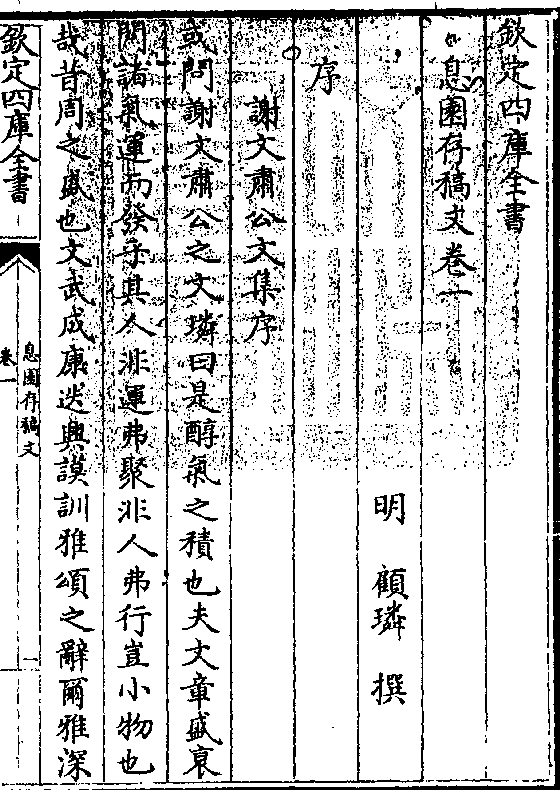 欽定四庫全書
息園存稿文卷一
明 顧璘 撰
序
謝文肅公文集序
或問謝文肅公之文璘曰是醇氣之積也夫文章盛衰
關諸氣運而發乎其人非運弗聚非人弗行豈小物也
哉昔周之盛也文武成康迭興謨訓雅頌之辭爾雅深
欽定四庫全書
息園存稿文
卷一
一